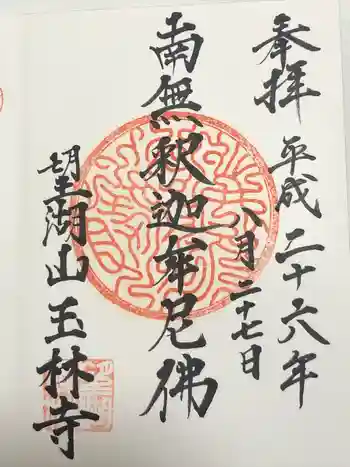 奉拝
平成二十六年
八月二十七日
南無釈迦牟尼佛
望湖山玉林寺